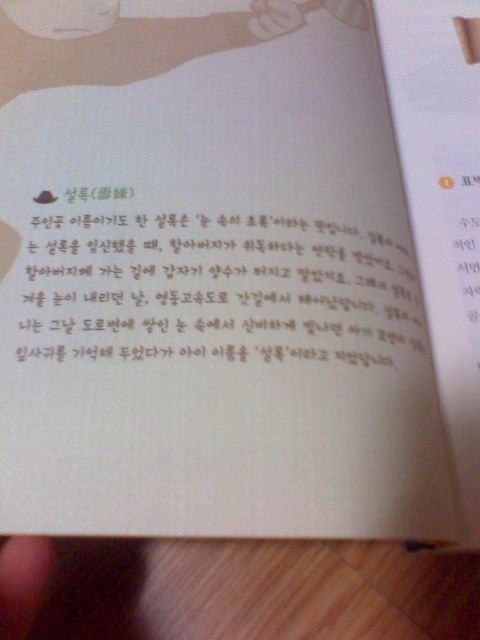 설록(雪綠)
주인공 이름이기도 한 설록은 '눈 속의 초록'이라는 뜻입니다. 설록의
는 설록을 임신했을 때, 할아버지가 위독하다는 연락을 받았어요.
할아버지께 가는 길에 갑자기 양수가 터지고 말았지요. 그래서 설록은
겨울 눈이 내리던 날, 영동고속도로 갓길에서 태어났답니다. 설록의
니는 그날 도로변에 쌓인 눈 속에서 신비하게 빛나던 아기
잎사귀를 기억해 두었다가 아이 이름을 '설록'이라고 지었답니다.
1